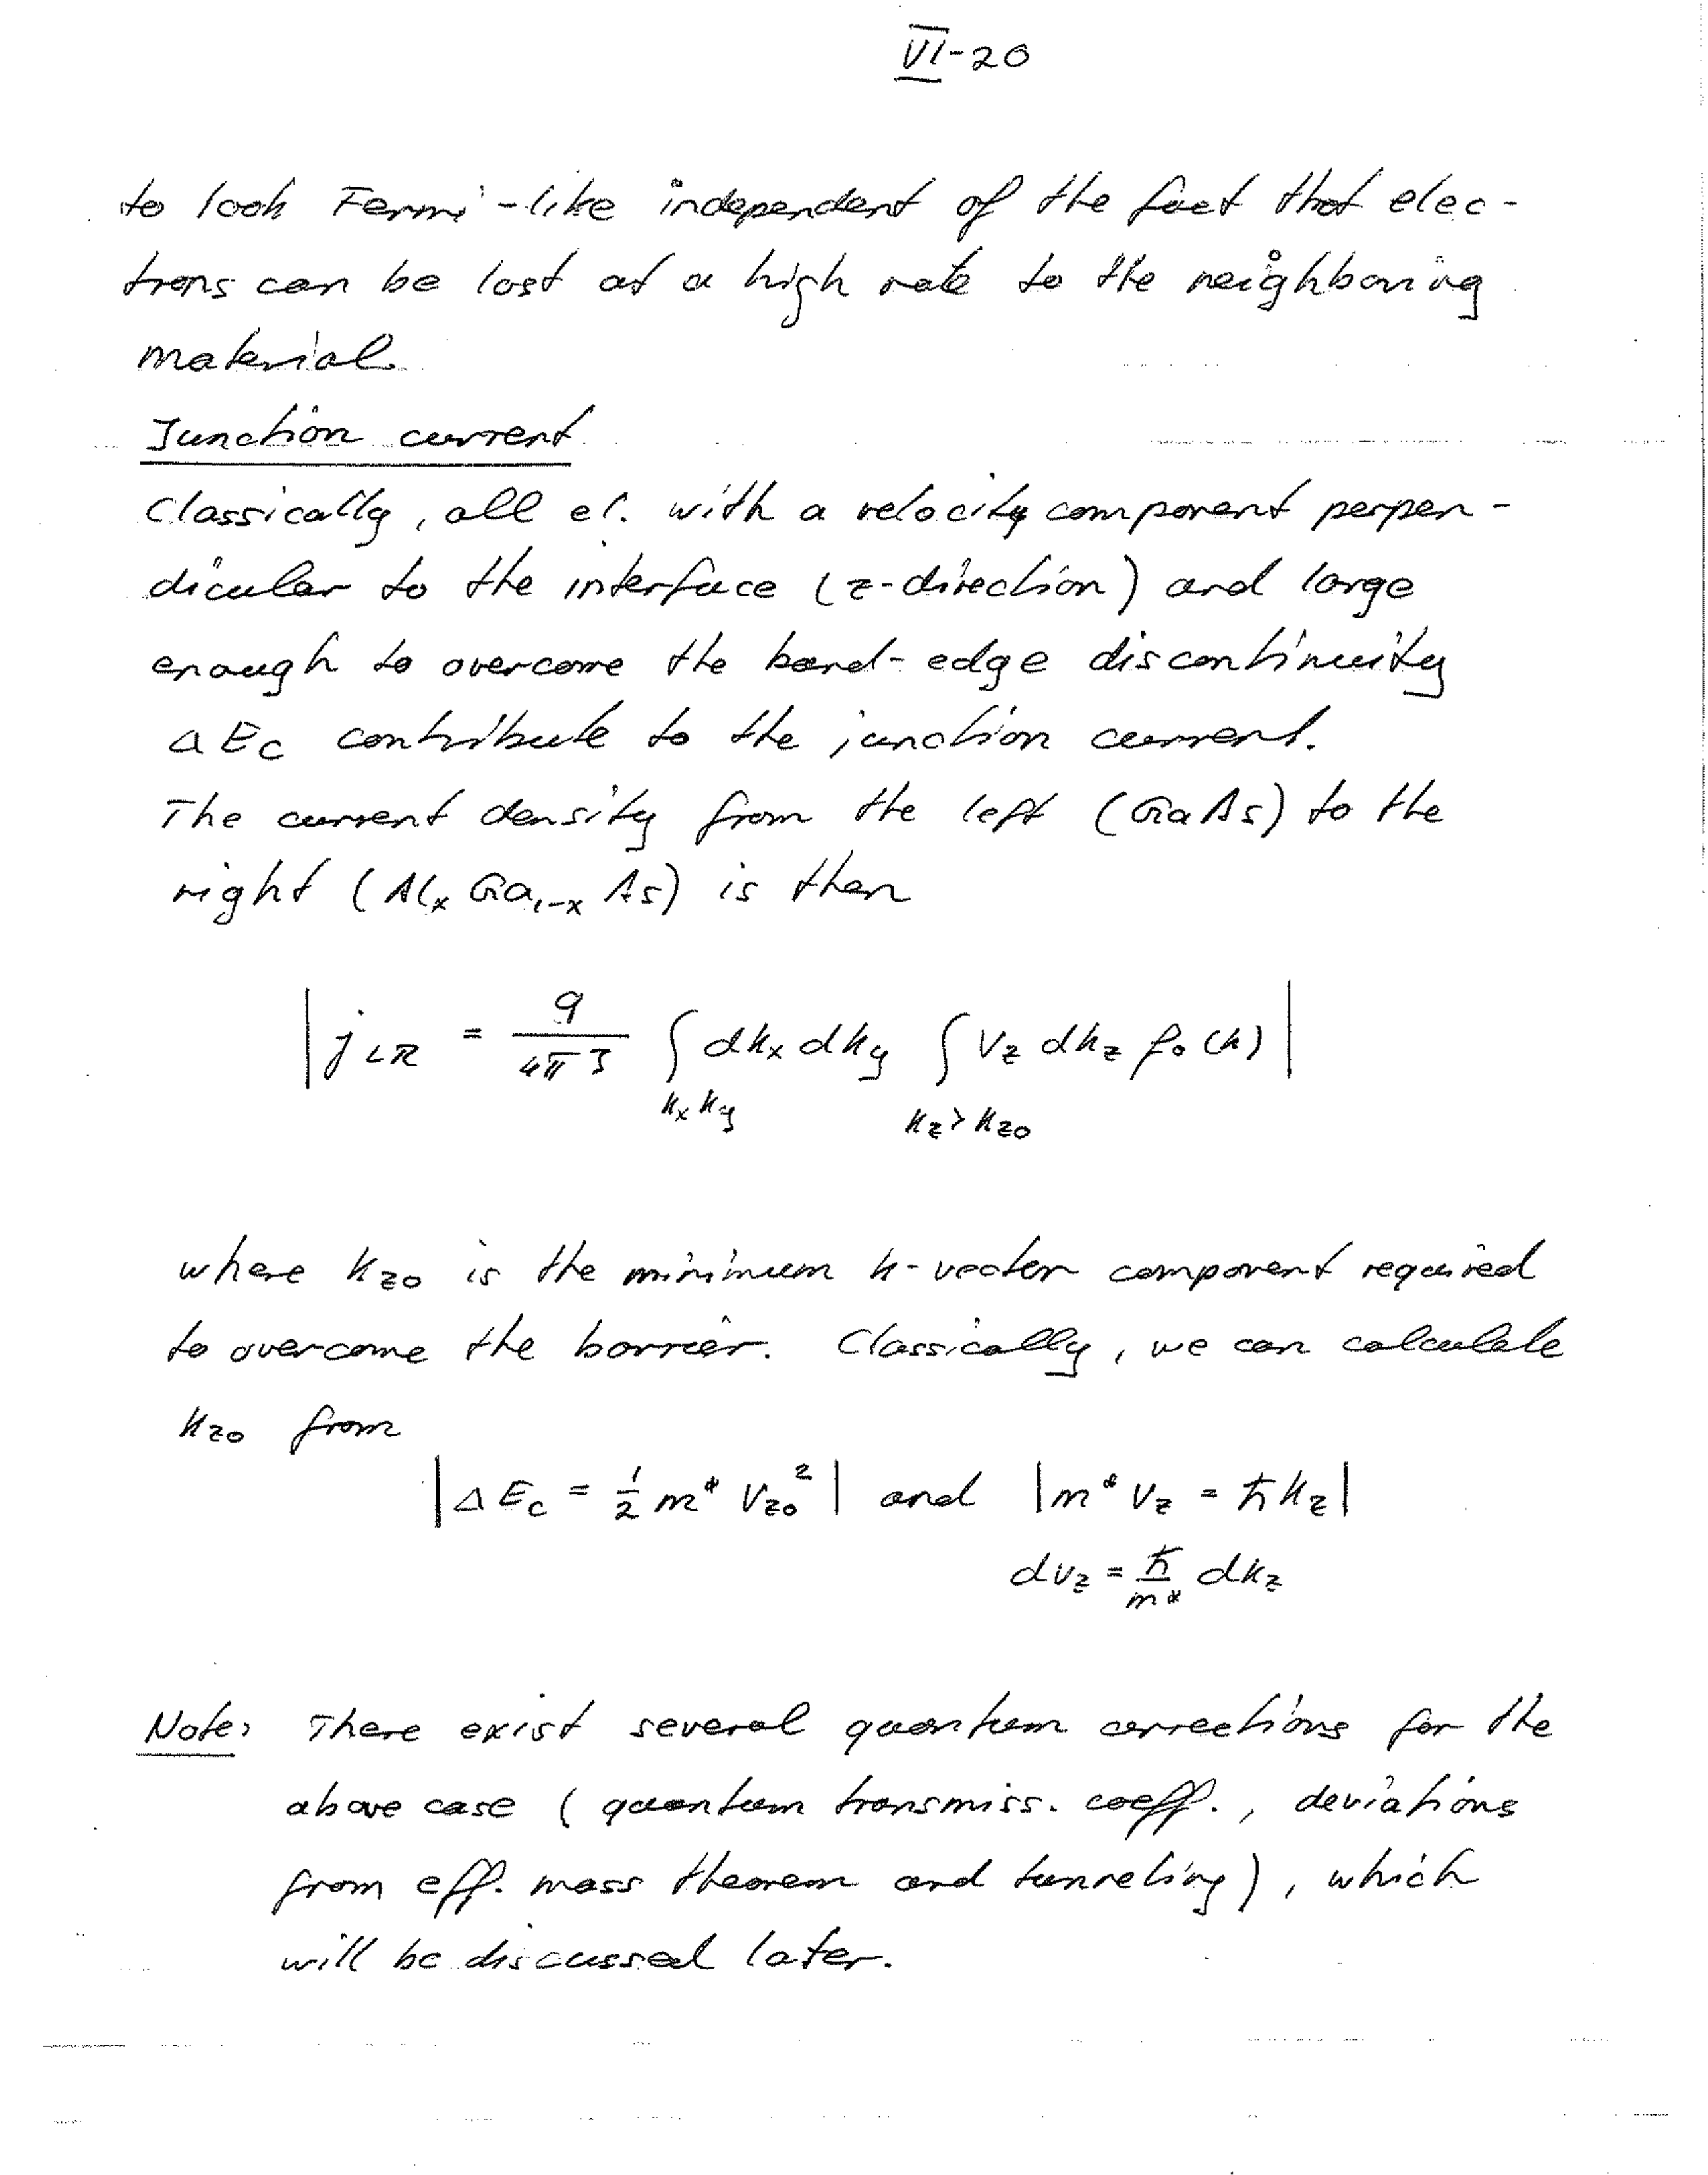 VI-20
to look Fermi-like independent of the fact that elec-
trons can be lost at a high rate to the neighboring
material.
Junction current
Classically, all el. with a velocity component perpen-
dicular to the interface (z-direction) and large
enough to overcome the band-edge discontinuity
ΔE_C contribute to the junction current.
The current density from the left (GaAs) to the
right (Al_x Ga_{1-x} As) is then
| j_{LR} = \frac{q}{4π^3} ∫_{k_x k_y} dk_x dk_y ∫_{k_z > k_{z0}} v_z dk_z f_0(k) |
where k_{z0} is the minimum k-vector component required
to overcome the barrier. Classically, we can calculate
k_{z0} from
| ΔE_C = \frac{1}{2} m* v_{z0}^2 | and | m* v_z = ℏk_z |
dv_z = \frac{ℏ}{m*} dk_z
Note: There exist several quantum corrections for the
above case (quantum transmiss. coeff., deviations
from eff. mass theorem and tunneling), which
will be discussed later.